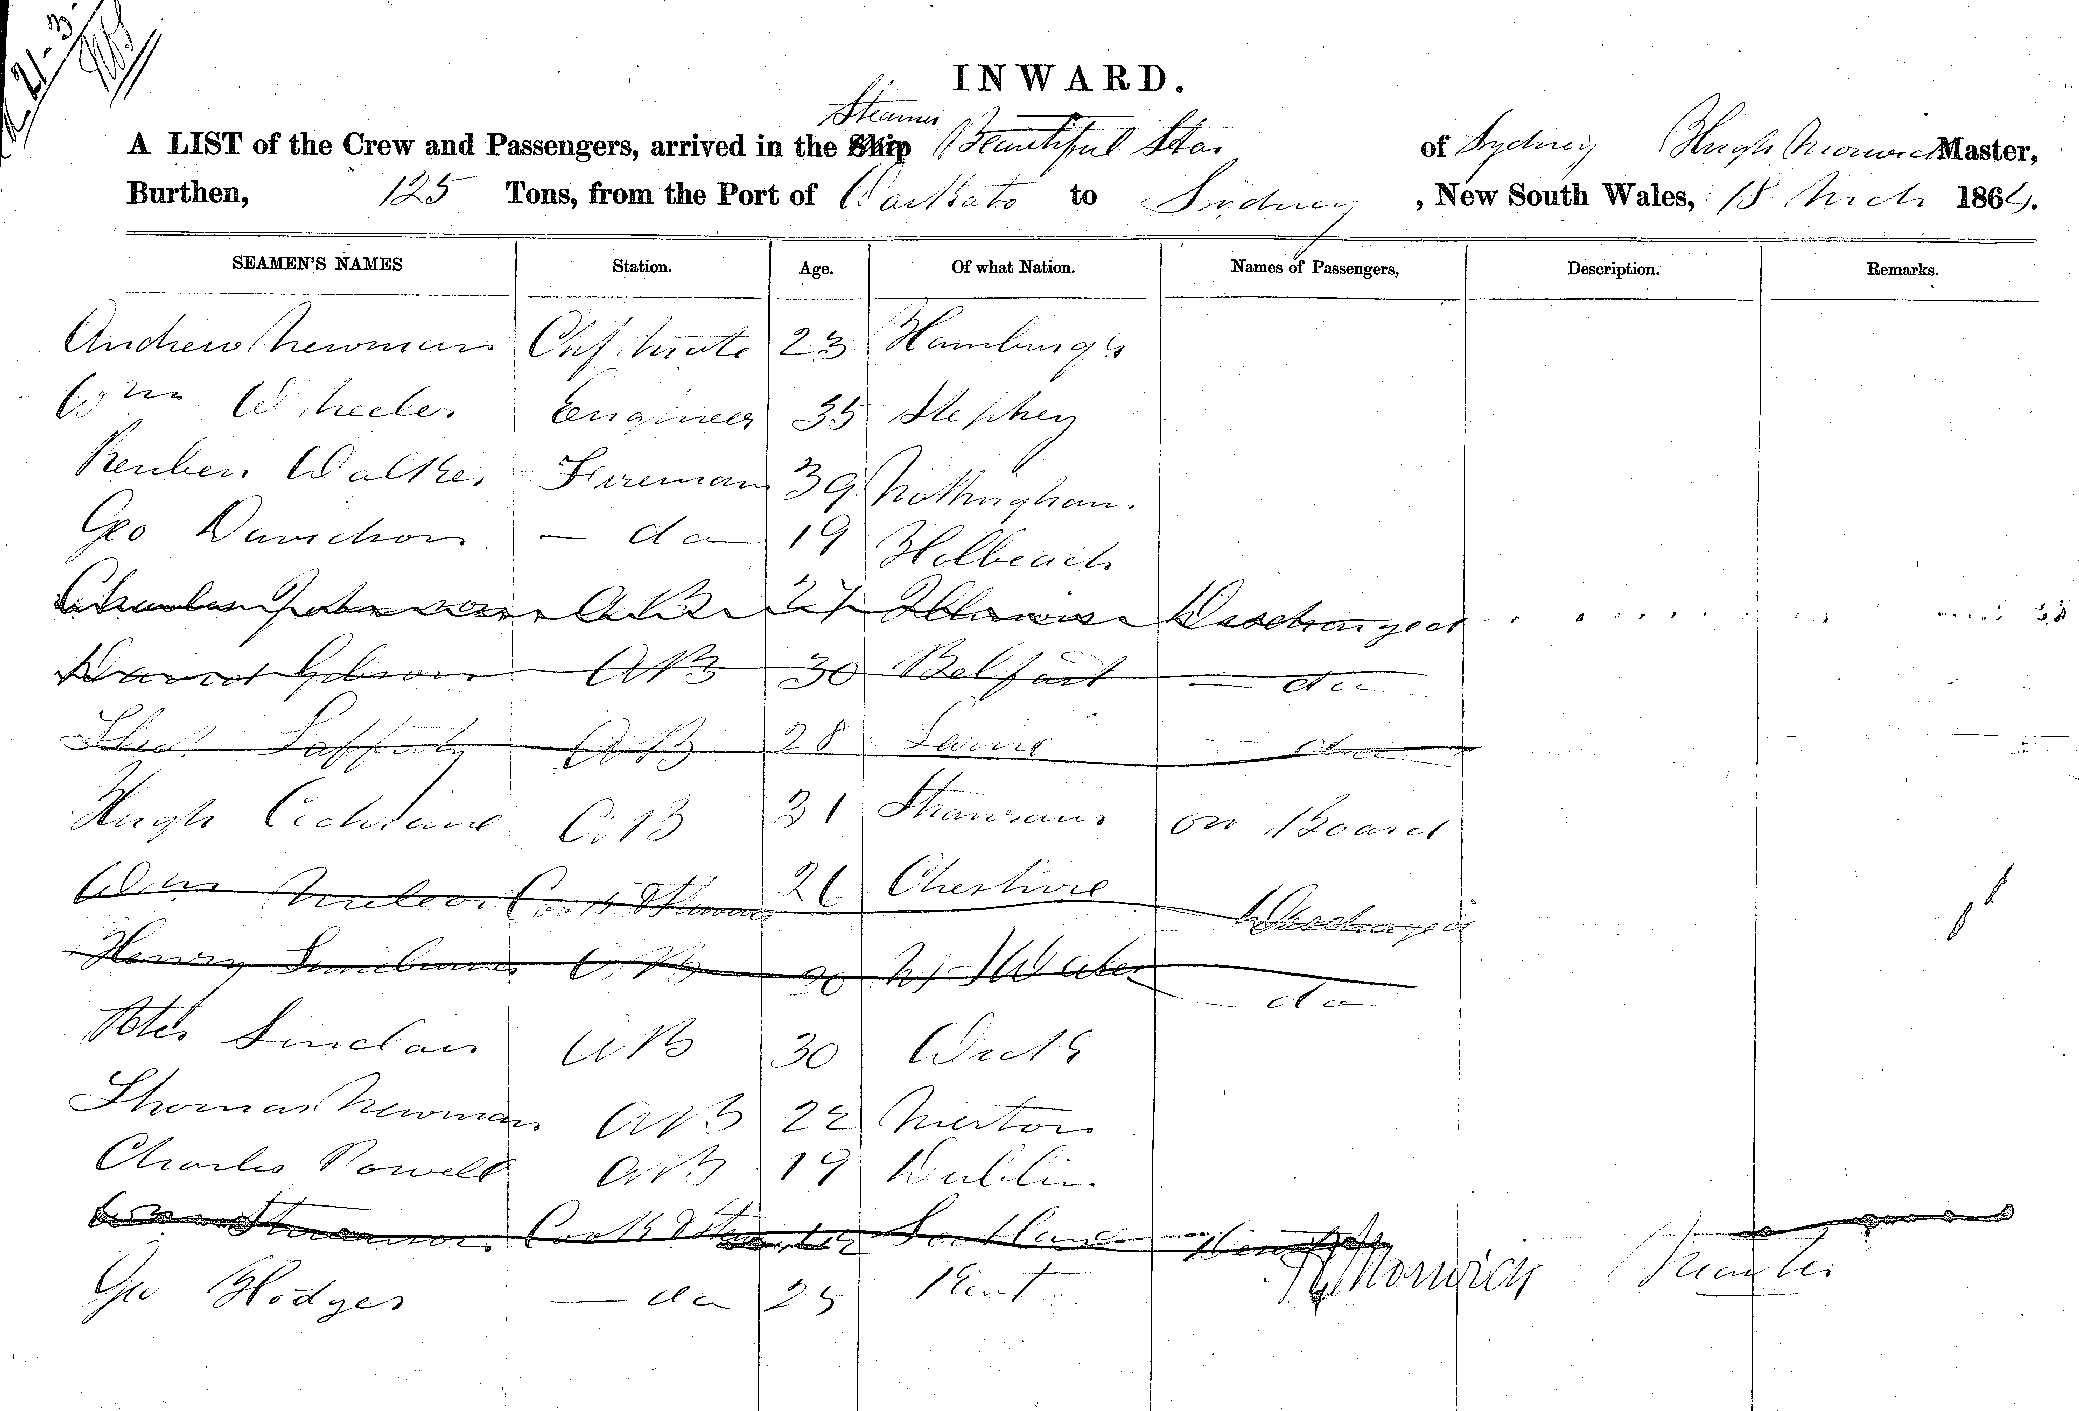 21-3
INWARD.
Steamer
A LIST of the Crew and Passengers, arrived in the Ship Beautiful Star of Sydney Hugh Monwick Master,
Burthen, 125 Tons, from the Port of Waikato to Sidney, New South Wales, 18 Mch 1864.
SEAMEN'S NAMES Station. Age. Of what Nation. Names of Passengers, Description. Remarks.
Andrew Newman Chf. Mate 23 Hamburgh
Wm Wheeler Engineer 35 Stepney
Reuben Walker Fireman 39 Nottingham.
Geo Davidson — do — 19 Holbeach
Charles Johnson AB 27 Illinois Discharged
David Gibson AB 30 Belfast — do —
Thos Lafferty AB 28 Larne — do —
Hugh Cochrane AB 31 Stranraer on Board
Wm Cook & Steward 26 Cheshire Discharged
Henry AB 20 N S Wales — do —
Peter Sinclair AB 30 Wick
Thomas Newman AB 22 Merton
Charles Powell AB 19 Dublin
Wm Cook & Scotland
Geo Hodges — do 25 Kent
H Monwick Master